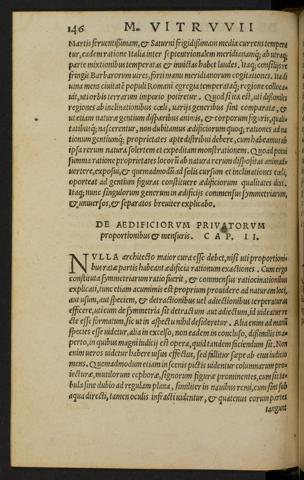 146 M. VITRVVII
Martis feruentissimam, & Saturni frigidissimam media currens tempera
tur, eadem ratione Italia inter septentrionalem meridianamq; ab utraq;
parte mixtionibus temperatas & inuictas habet laudes. Itaq; consilijs re
fringit Barbarorum uires, forti manu meridianorum cogitationes. Ita di
uina mens ciuitatē populi Romani egregia temperataq; regione colloca-
uit, uti orbis terrarum imperio potiretur. Quod si ita est, uti dissimiles
regiones ab inclinationibus cœli, uarijs generibus sint comparatæ, &
ut etiam naturæ gentium disparibus animis, & corporum figuris, quali-
tatibusq; nascerentur, non dubitamus ædificiorum quoq; rationes ad na
tionum gentiumq; proprietates apte distribui debere, cum habeamus ab
ipsa rerum natura solertem et expeditam monstrationem. Quoad potui
summa ratione proprietates locorū ab natura rerum dispositas animad-
uertere, exposui, & quemadmodū ad solis cursum et inclinationes cœli,
oporteat ad gentium figuras constituere ædificiorum qualitates dixi.
Itaq; nunc singulorum generum in ædificijs commensus symmetriarum,
& uniuersos, & separatos breuiter explicabo.
DE AEDIFICIORVM PRIVATORVM
proportionibus & mensuris. CAP. II.
NVLLA architecto maior cura esse debet, nisi uti proportioni-
bus ratæ partis habeant ædificia rationum exactiones. Cum ergo
constituta symmetriarum ratio fuerit, & commensus ratiocinationibus
explicati, tunc etiam acuminis est proprium prouidere ad naturam loci,
aut usum, aut speciem, & detractionibus uel adiectionibus temperaturas
efficere, uti cum de symmetria sit detractum aut adiectum, id uideatur re
cte esse formatum, sic ut in aspectu nihil desideretur. Alia enim ad manū
species esse uidetur, alia in excelso, non eadem in concluso, dissimilis in a-
perto, in quibus magni iudicij est opera, quid tandem sit faciundum sit. Non
enim ueros uidetur habere uisus effectus, sed fallitur sæpe ab eius iudicio
mens. Quemadmodum etiam in scenis pictis uidentur columnarum pro-
iecturæ, mutilorum ecphoræ, signorum figuræ prominentes, cum sit ta-
bula sine dubio ad regulam plana, similiter in nauibus remi, cum sint sub
aqua directi, tamen oculis infracti uidentur, & quatenus eorum partes
tangunt